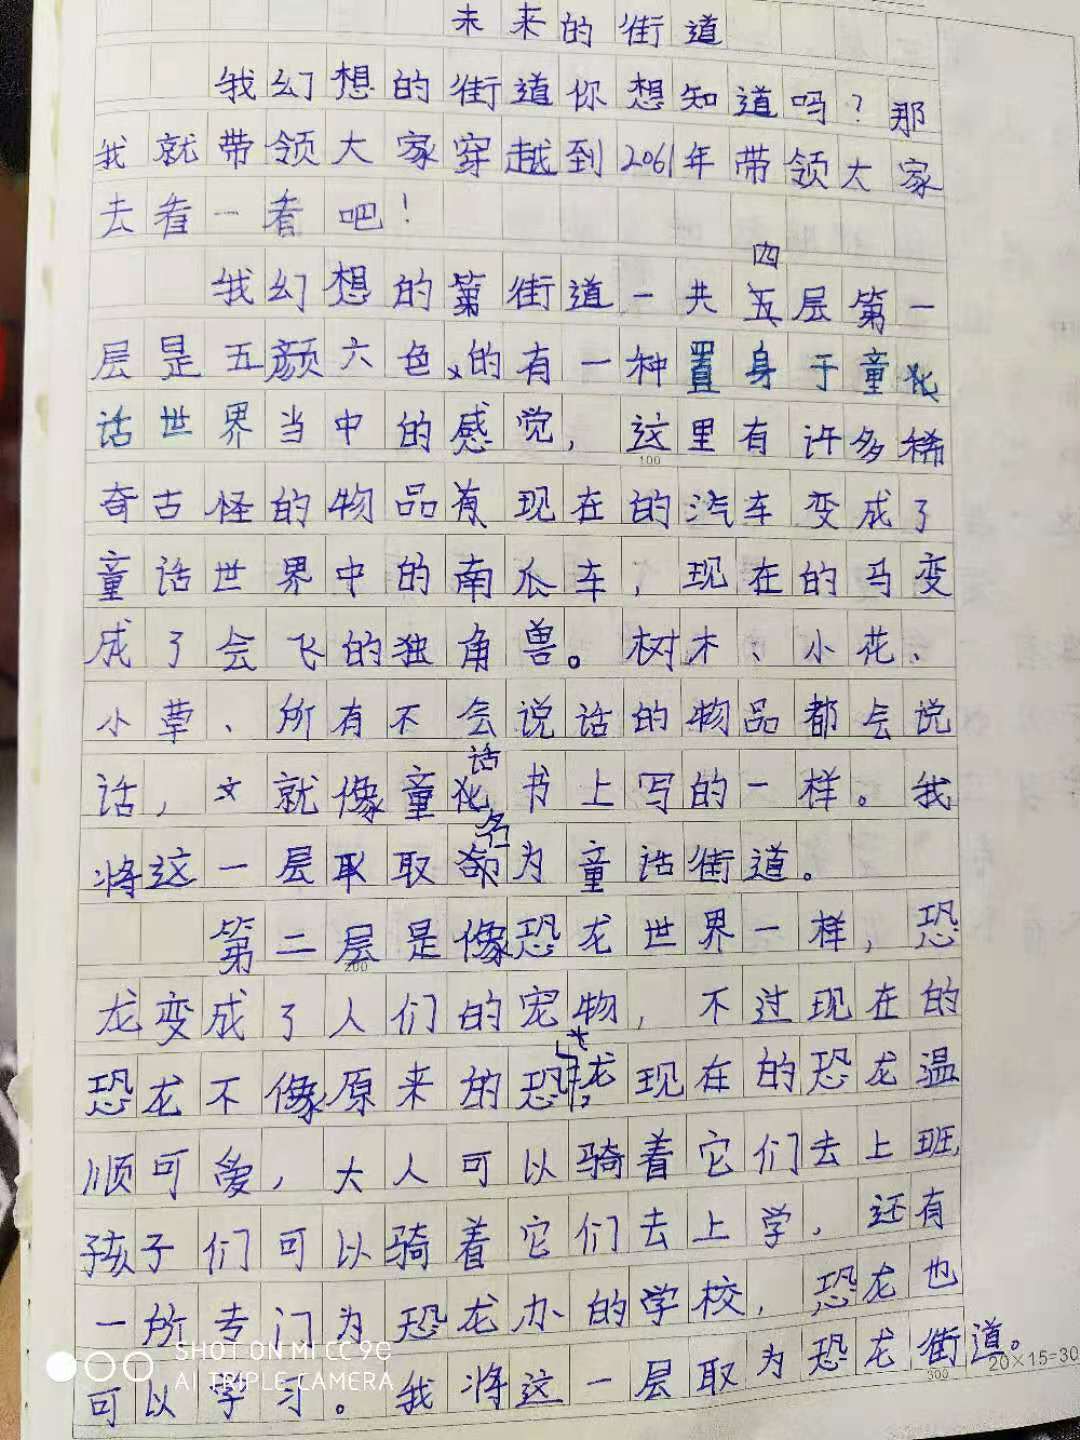 未来的街道
我幻想的街道你想知道吗？那
我就带领大家穿越到2061年带领大家
去看一看吧！
四
我幻想的第街道一共五层第一
层是五颜六色的有一种置身于童化
话世界当中的感觉，这里有许多稀
100
奇古怪的物品有现在的汽车变成了
童话世界中的南瓜车，现在的马变
成了会飞的独角兽。树木、小花、
小草、所有不会说话的物品都会说
话
话，文就像童化书上写的一样。我
名
将这一层取取命为童话街道。
第二层是像恐龙世界一样，恐
200
龙变成了人们的宠物，不过现在的
恐龙不像原来的恐龙现在的恐龙温
顺可爱，大人可以骑着它们去上班，
孩子们可以骑着它们去上学，还有
一所专门为恐龙办的学校，恐龙也
可以学习。我将这一层取为恐龙街道。
300
20×15=30
SHOT ON MI CC 9e
AI TRIPLE CAMERA